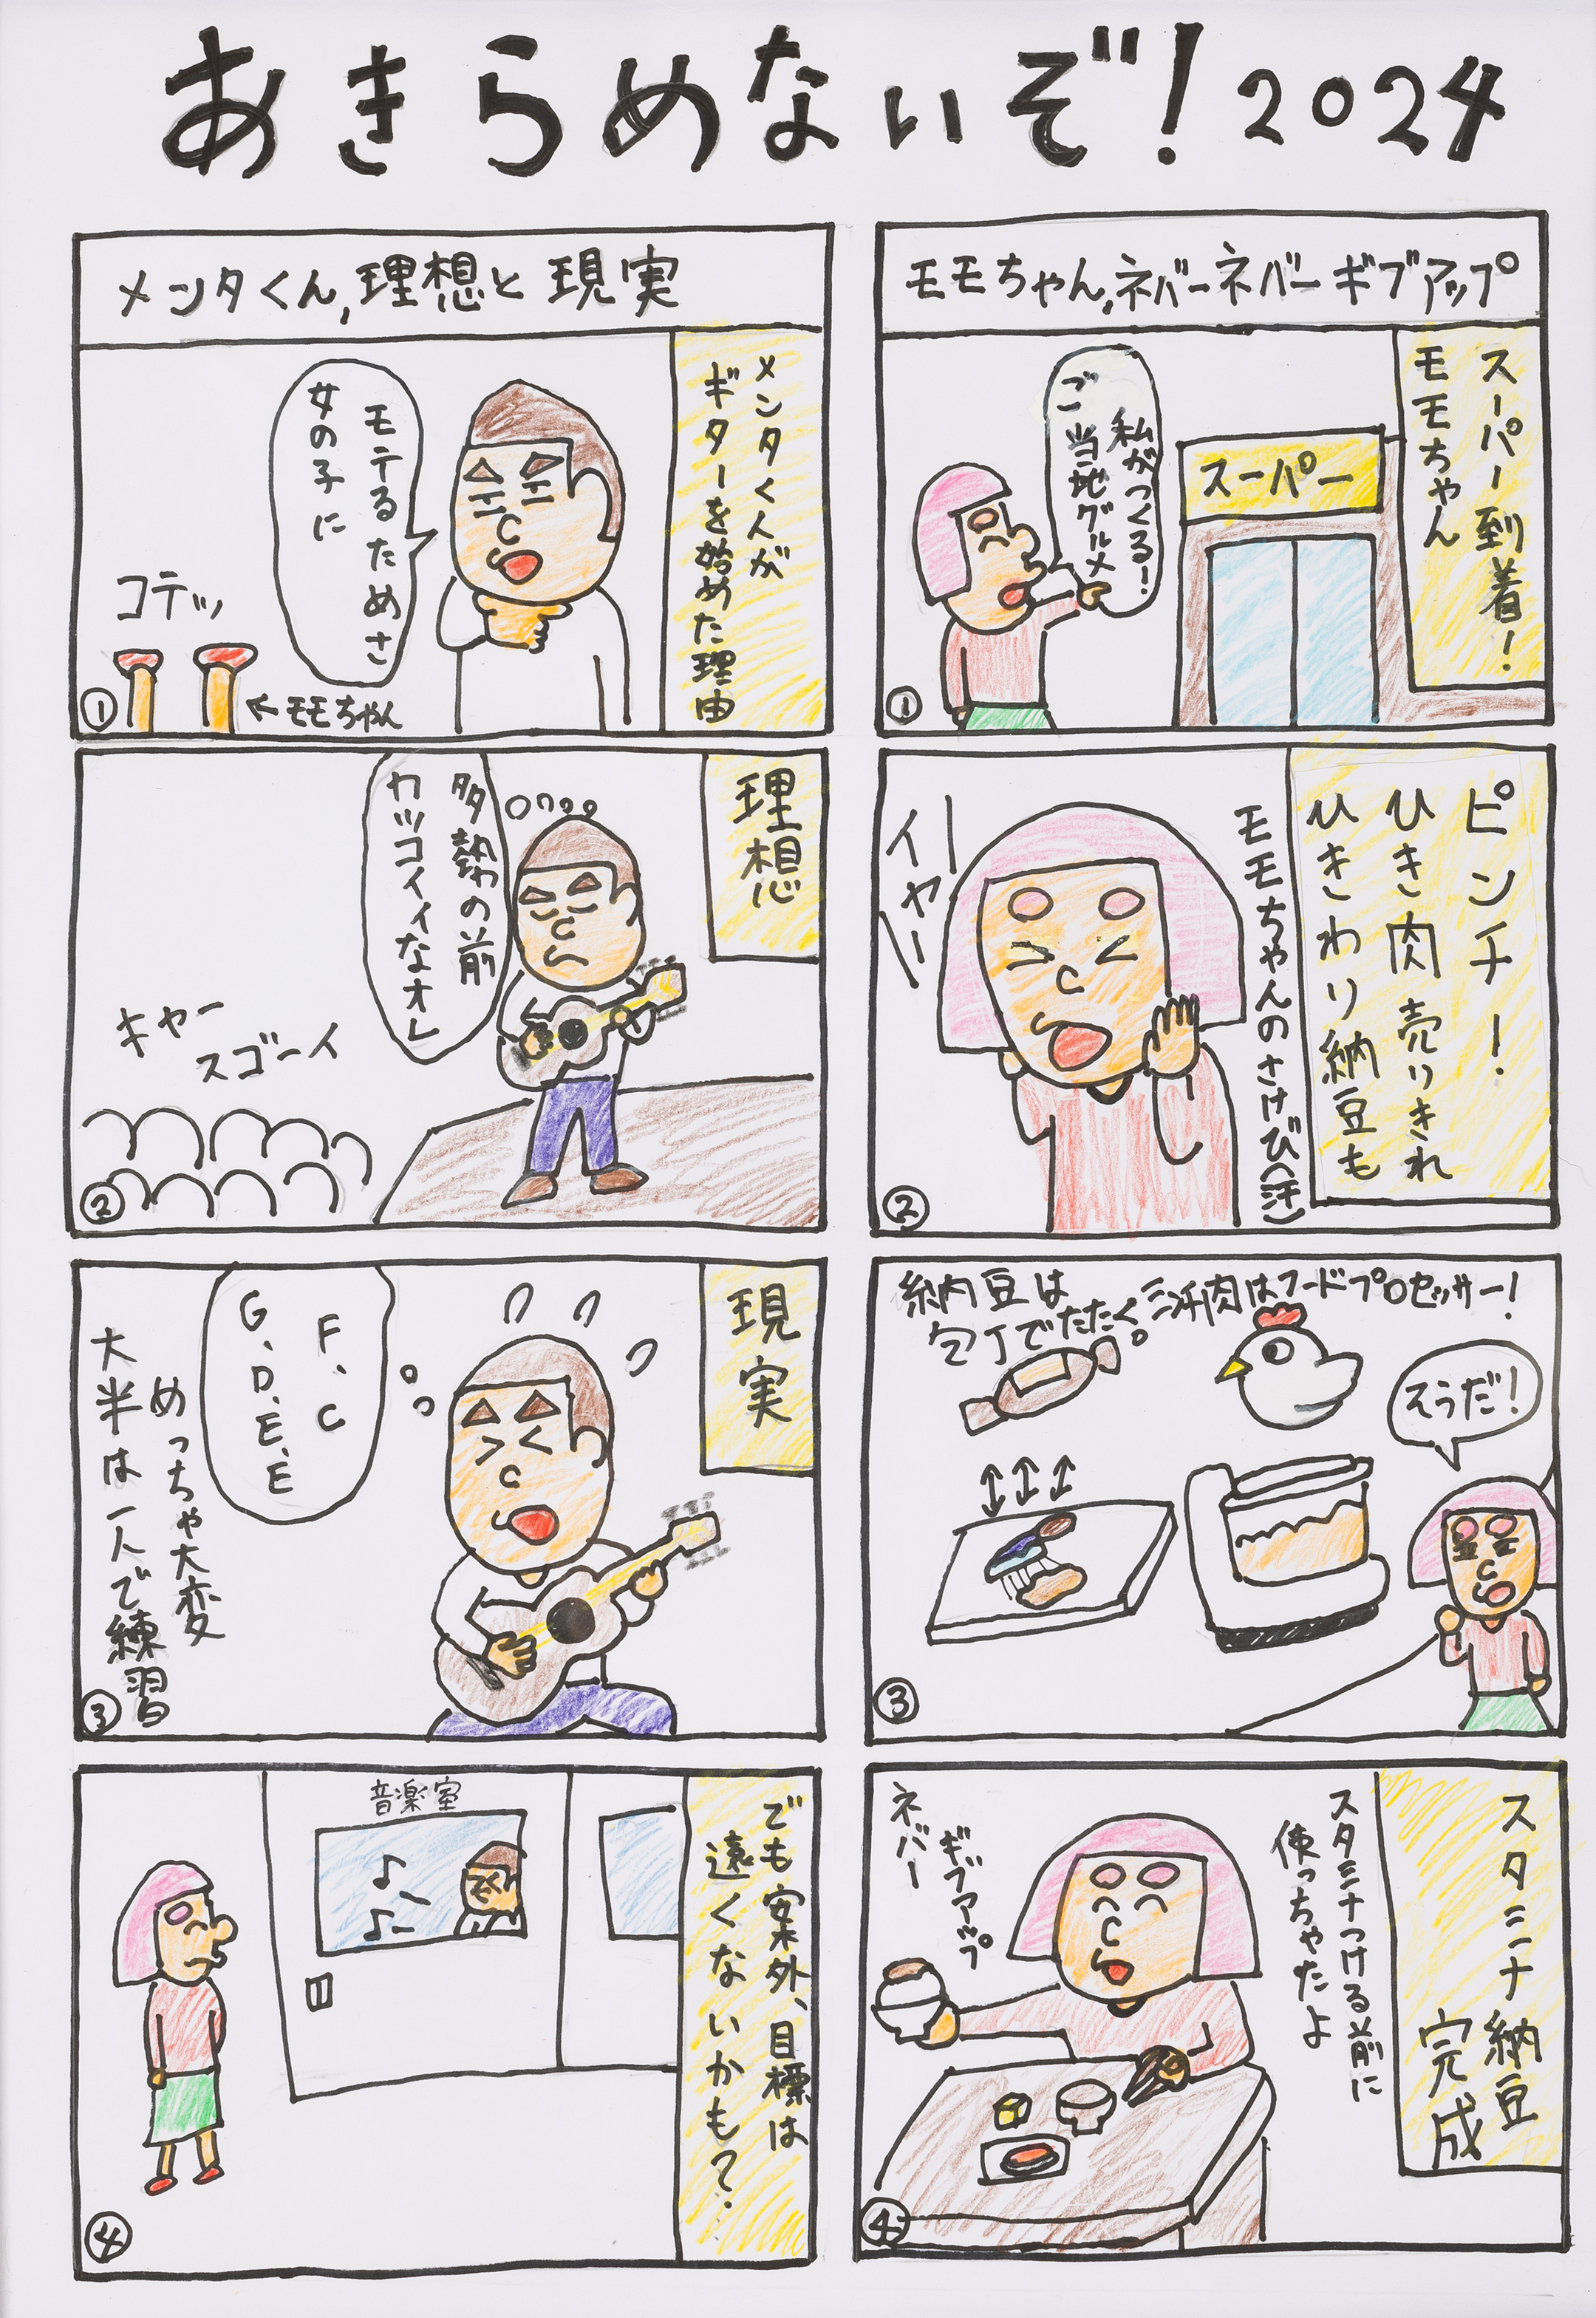 あきらめないぞ！2024
モモちゃん,ネバーネバーギブアップ
スーパー到着！
モモちゃん
スーパー
私がつくる！
ご当地グルメ
①
ピンチ！
ひき肉売りきれ
ひきわり納豆も
モモちゃんのさけび(汗)
イヤー
②
納豆は
包丁でたたく。
肉はフードプロセッサー！
そうだ！
③
スタミナ納豆
完成
スタミナつける前に
使っちゃたよ
ギブアップ
ネバー
④
メンタくん,理想と現実
メンタくんが
ギターを始めた理由
モテるためさ
女の子に
コテッ
←モモちゃん
①
理想
多勢の前
カッコイイなオレ
キャー
スゴーイ
②
現実
F、C
G、D、E、E
めっちゃ大変
大半は一人で練習
③
でも案外、目標は
遠くないかも？
音楽室
④